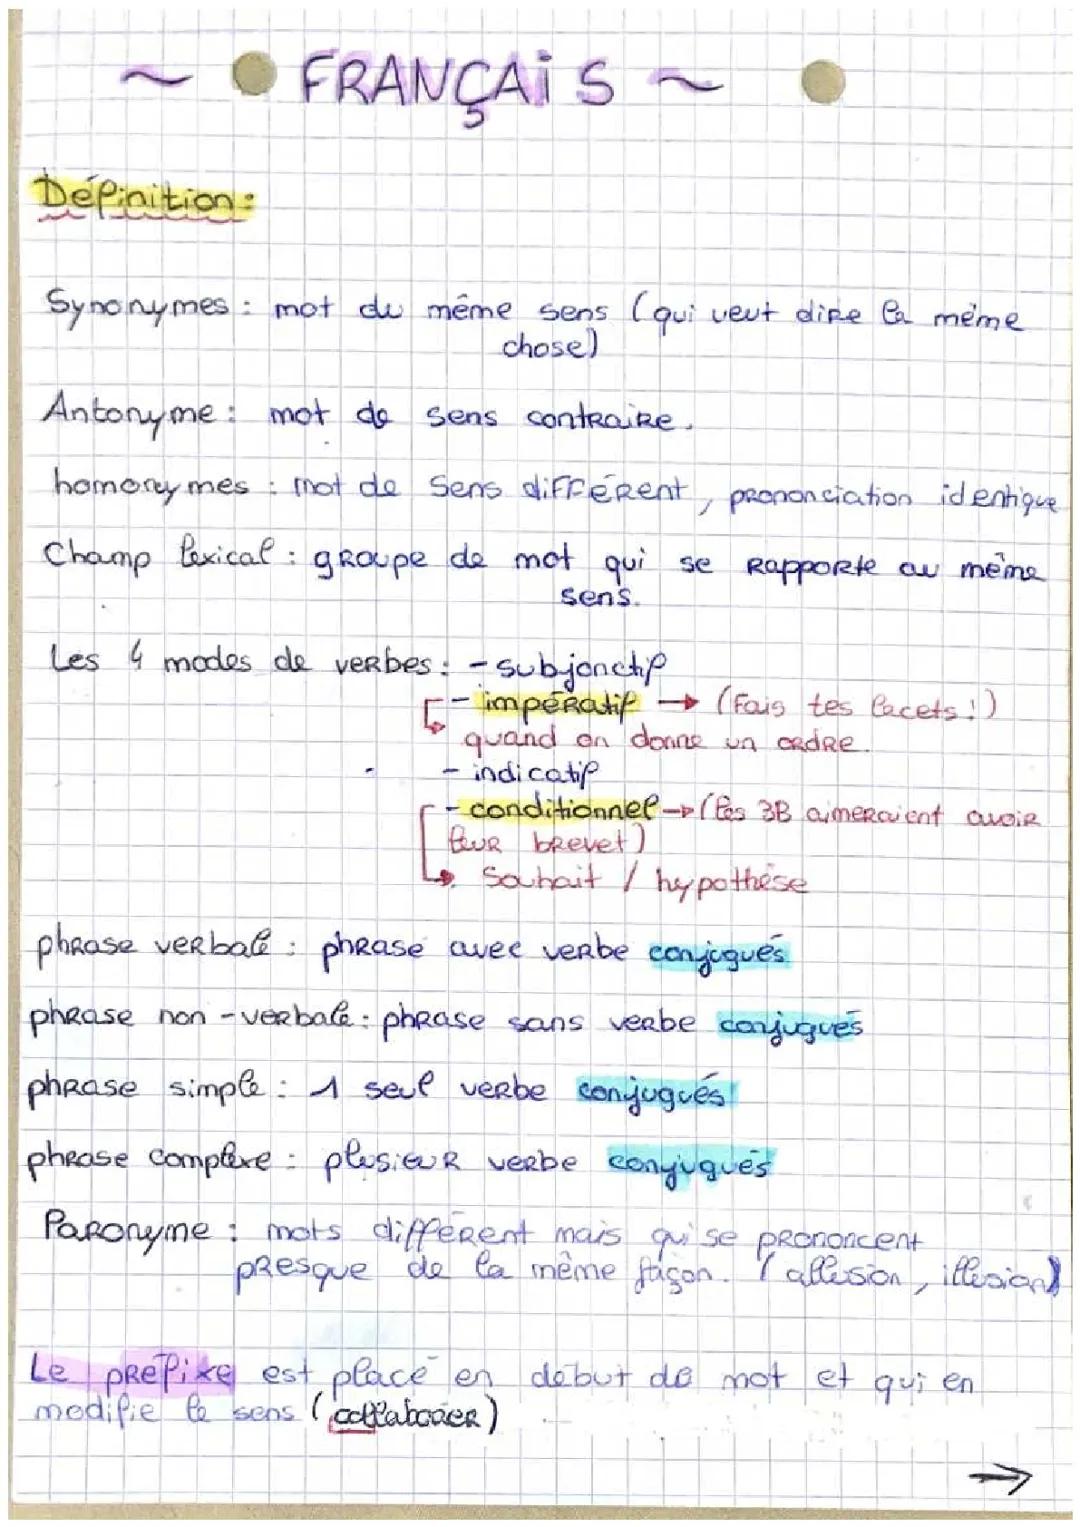 ~ FRANÇAiS ~
Définition:
Synonymes : mot du même sens (qui veut dire la même
chose)
Antonyme : mot de sens contraire.
homonymes : mot de sens différent, prononciation identique
Champ lexical : groupe de mot qui se rapporte au même
sens.
Les 4 modes de verbes : - subjonctif
- impératif → (Fais tes lacets !)
quand on donne un ordre.
- indicatif
- conditionnel → (les 3B aimeraient avoir
leur brevet)
↳ Souhait / hypothèse
phrase verbale : phrase avec verbe conjugués
phrase non-verbale : phrase sans verbe conjugués
phrase simple : 1 seul verbe conjugués
phrase complexe : plusieur verbe conjugués
Paronyme : mots différent mais qui se prononcent
presque de la même façon. (allusion, illusion)
Le préfixe est placé en début de mot et qui en
modifie le sens (collaborer)
→